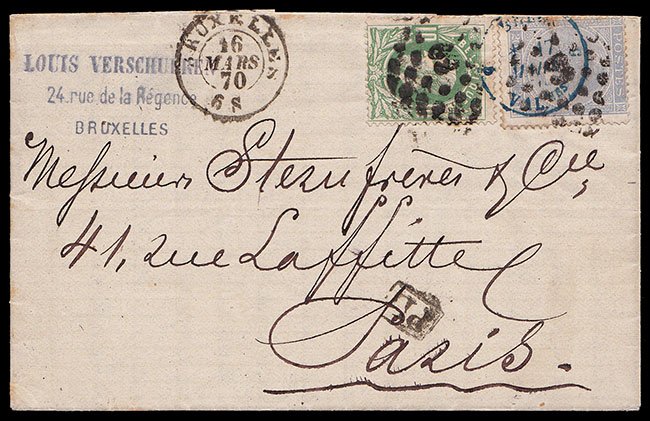 BRUXELLES
16
MARS
70
6 S
LOUIS VERSCHUERE
24. rue de la Régence
BRUXELLES
Messieurs Stern frères & Cie
41, rue Laffitte
PD
Paris.